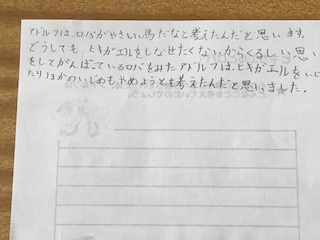 アドルフは、ロバがやさしい馬だなと考えたんだと思います。
どうしても、ヒキガエルをしなせたくないからくるしい思い
をしてがんばっているロバをみたアドルフは、ヒキガエルをいじめ
たりほかのいじめもやめようとも考えたんだと思いました。